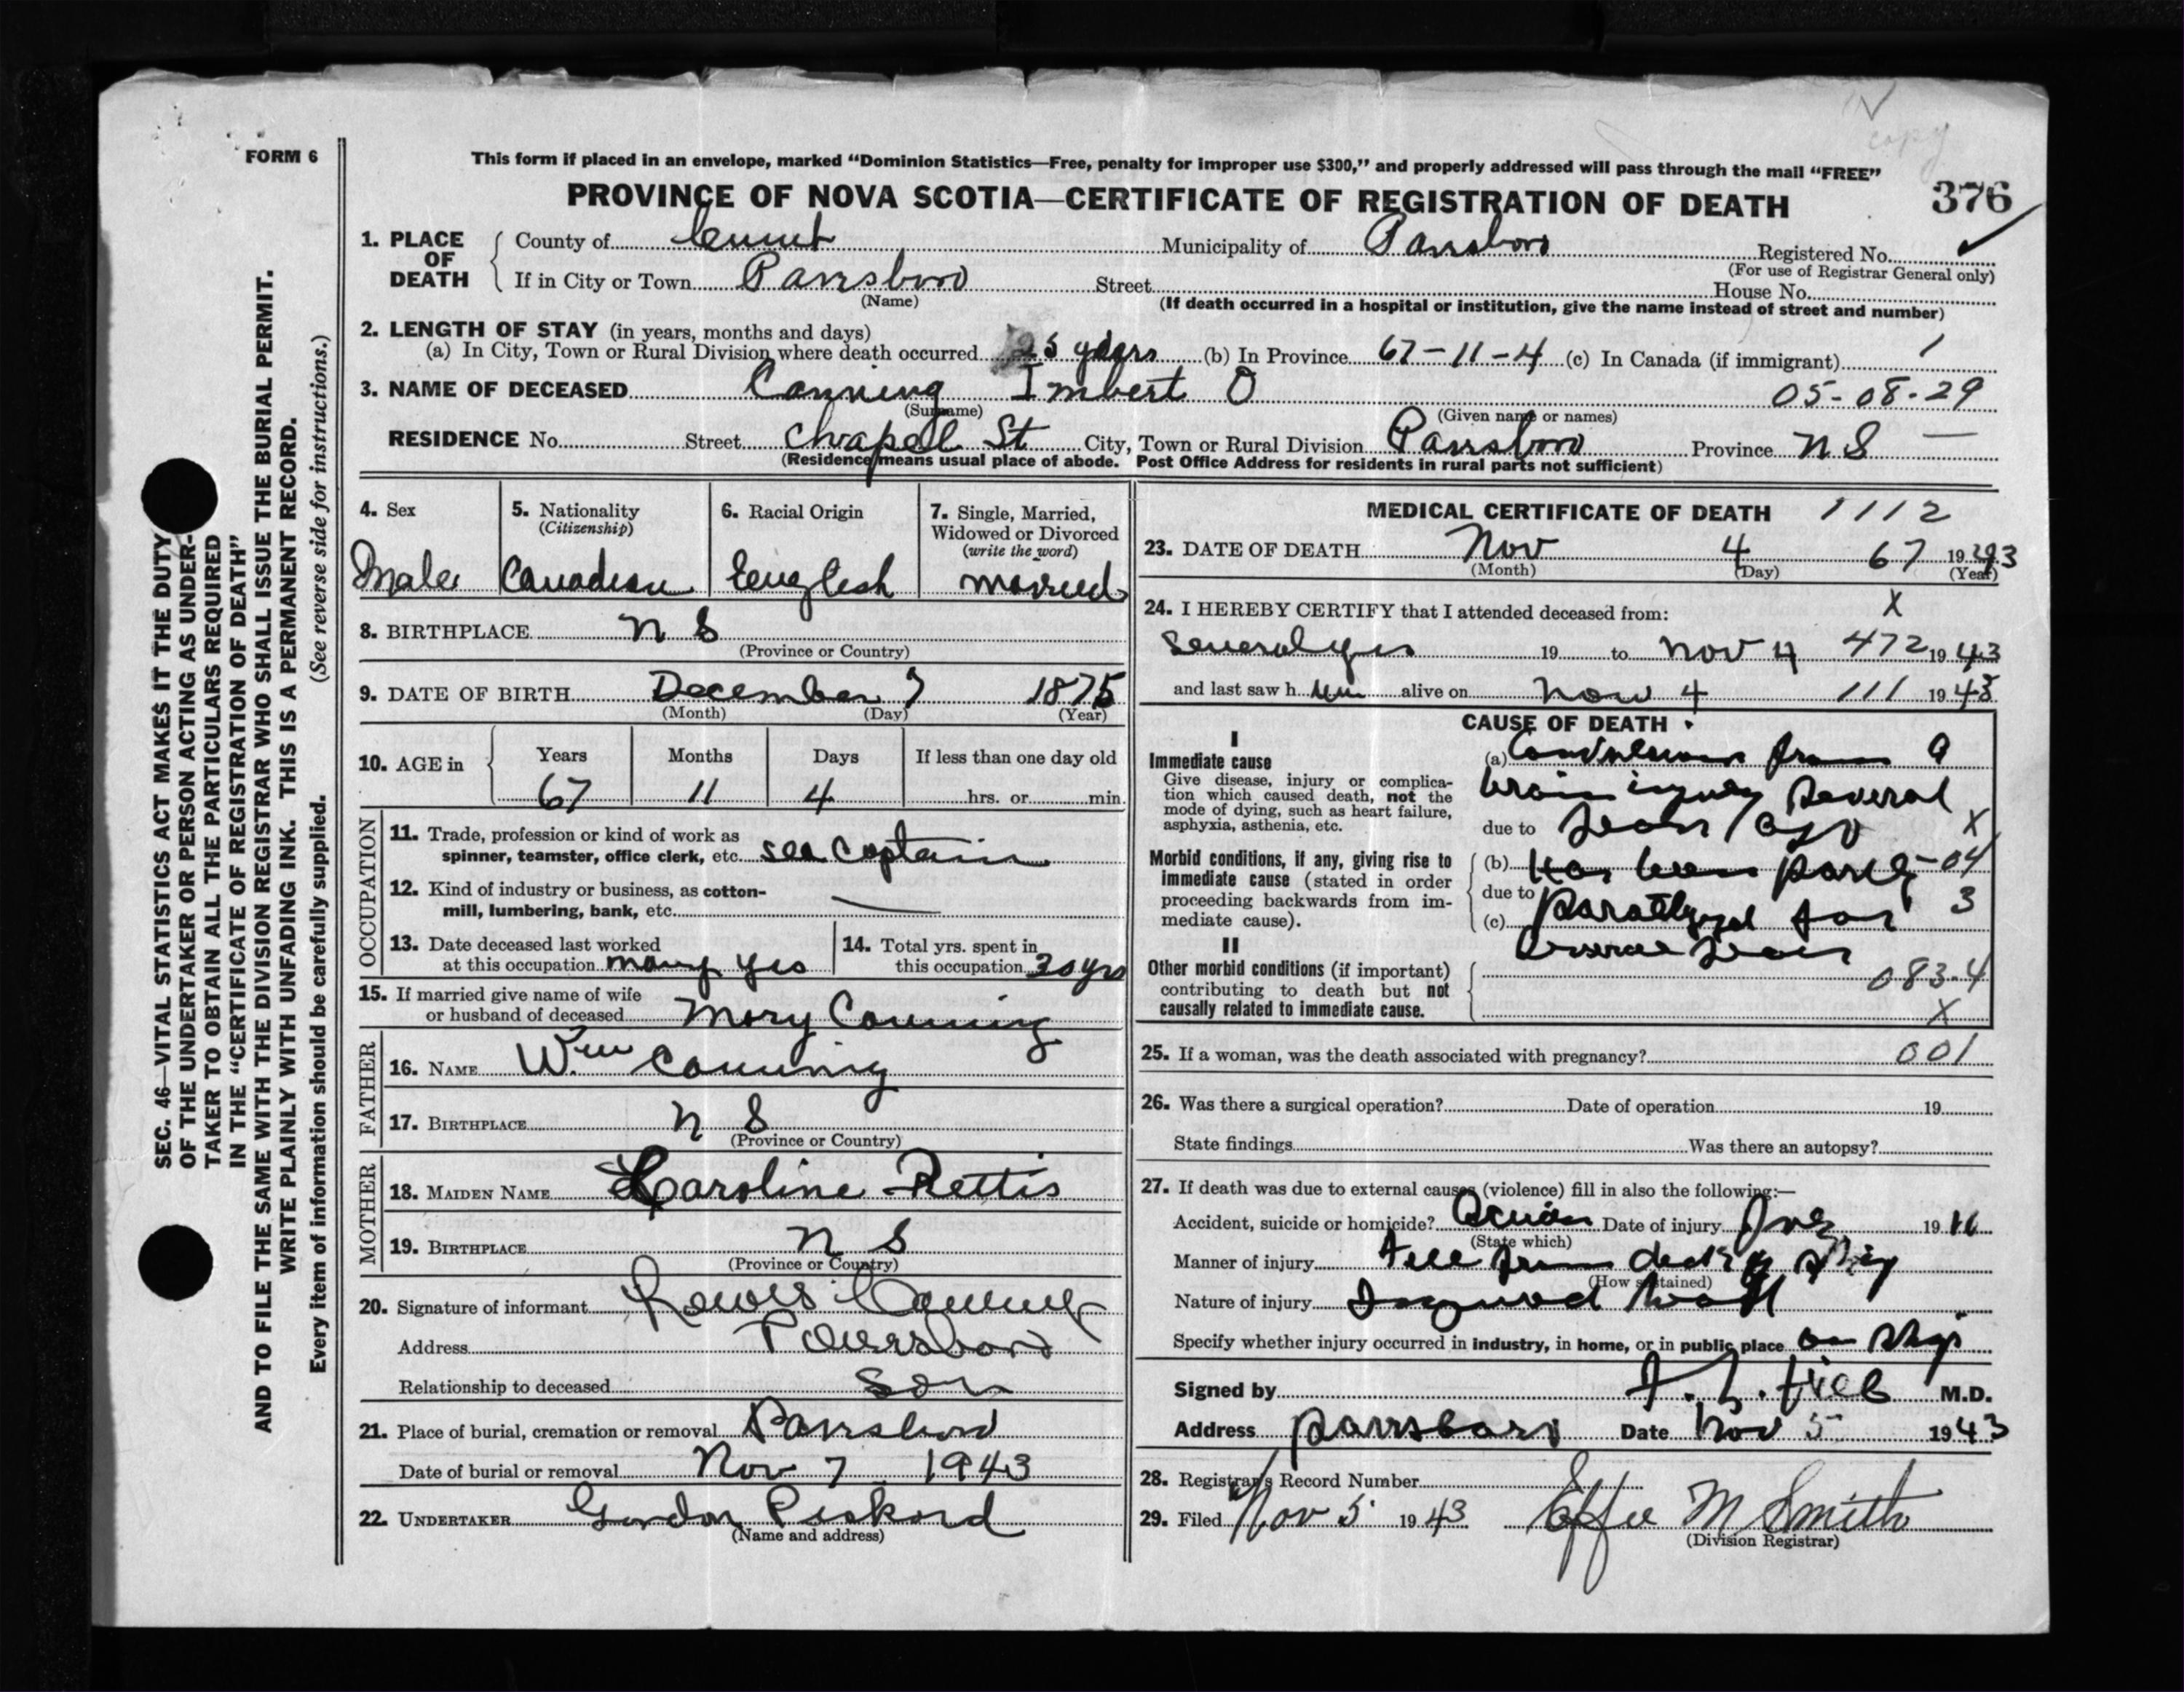 copy
FORM 6
This form if placed in an envelope, marked "Dominion Statistics—Free, penalty for improper use $300," and properly addressed will pass through the mail "FREE"
PROVINCE OF NOVA SCOTIA—CERTIFICATE OF REGISTRATION OF DEATH 376
1. PLACE OF DEATH County of Cumb Municipality of Parrsboro Registered No.
(For use of Registrar General only)
If in City or Town Parrsboro Street House No.
(Name) (If death occurred in a hospital or institution, give the name instead of street and number)
2. LENGTH OF STAY (in years, months and days)
(a) In City, Town or Rural Division where death occurred 25 years (b) In Province 67-11-4 (c) In Canada (if immigrant) 1
3. NAME OF DECEASED Canning Imbert O 05-08-29
(Surname) (Given name or names)
RESIDENCE No. Street Chapel St City, Town or Rural Division Parrsboro Province N S —
(Residence means usual place of abode. Post Office Address for residents in rural parts not sufficient)
4. Sex Male
5. Nationality (Citizenship) Canadian
6. Racial Origin English
7. Single, Married, Widowed or Divorced (write the word) Married
8. BIRTHPLACE N S
(Province or Country)
9. DATE OF BIRTH December 7 1875
(Month) (Day) (Year)
10. AGE in Years Months Days If less than one day old
67 11 4 hrs. or min.
OCCUPATION
11. Trade, profession or kind of work as
spinner, teamster, office clerk, etc. Sea Captain
12. Kind of industry or business, as cotton-
mill, lumbering, bank, etc. —
13. Date deceased last worked
at this occupation many yrs
14. Total yrs. spent in
this occupation 30 yrs
15. If married give name of wife
or husband of deceased Mary Canning
FATHER
16. NAME Wm Canning
17. BIRTHPLACE N S
(Province or Country)
MOTHER
18. MAIDEN NAME Caroline Pettis
19. BIRTHPLACE N S
(Province or Country)
20. Signature of informant Lewis Canning
Address Parrsboro
Relationship to deceased Son
21. Place of burial, cremation or removal Parrsboro
Date of burial or removal Nov 7 1943
22. UNDERTAKER Gordon
(Name and address)
MEDICAL CERTIFICATE OF DEATH 1112
23. DATE OF DEATH Nov 4 67 1943
(Month) (Day) (Year)
24. I HEREBY CERTIFY that I attended deceased from: X
Several yrs 19 to Nov 4 472 1943
and last saw h im alive on Nov 4 111 1943
CAUSE OF DEATH
I
Immediate cause
Give disease, injury or complica-
tion which caused death, not the
mode of dying, such as heart failure,
asphyxia, asthenia, etc.
(a) Convulsions from a
brain injury several
due to years ago X
Morbid conditions, if any, giving rise to
immediate cause (stated in order
proceeding backwards from im-
mediate cause).
(b) Has been partly -04
due to 3
(c) paralyzed for
several years
II
Other morbid conditions (if important)
contributing to death but not
causally related to immediate cause.
083.4
X
25. If a woman, was the death associated with pregnancy? 001
26. Was there a surgical operation? Date of operation 19
State findings Was there an autopsy?
27. If death was due to external causes (violence) fill in also the following:—
Accident, suicide or homicide? Date of injury 19
(State which)
Manner of injury Fell from deck of ship
(How sustained)
Nature of injury Injured head
Specify whether injury occurred in industry, in home, or in public place on ship
Signed by M.D.
Address Parrsboro Date Nov 5 1943
28. Registrar's Record Number
29. Filed Nov 5 1943 Effie M Smith
(Division Registrar)
SEC. 46—VITAL STATISTICS ACT MAKES IT THE DUTY
OF THE UNDERTAKER OR PERSON ACTING AS UNDER-
TAKER TO OBTAIN ALL THE PARTICULARS REQUIRED
IN THE "CERTIFICATE OF DEATH"
AND TO FILE THE SAME WITH THE DIVISION REGISTRAR WHO SHALL ISSUE THE BURIAL PERMIT.
WRITE PLAINLY WITH UNFADING INK. THIS IS A PERMANENT RECORD.
Every item of information should be carefully supplied. (See reverse side for instructions.)